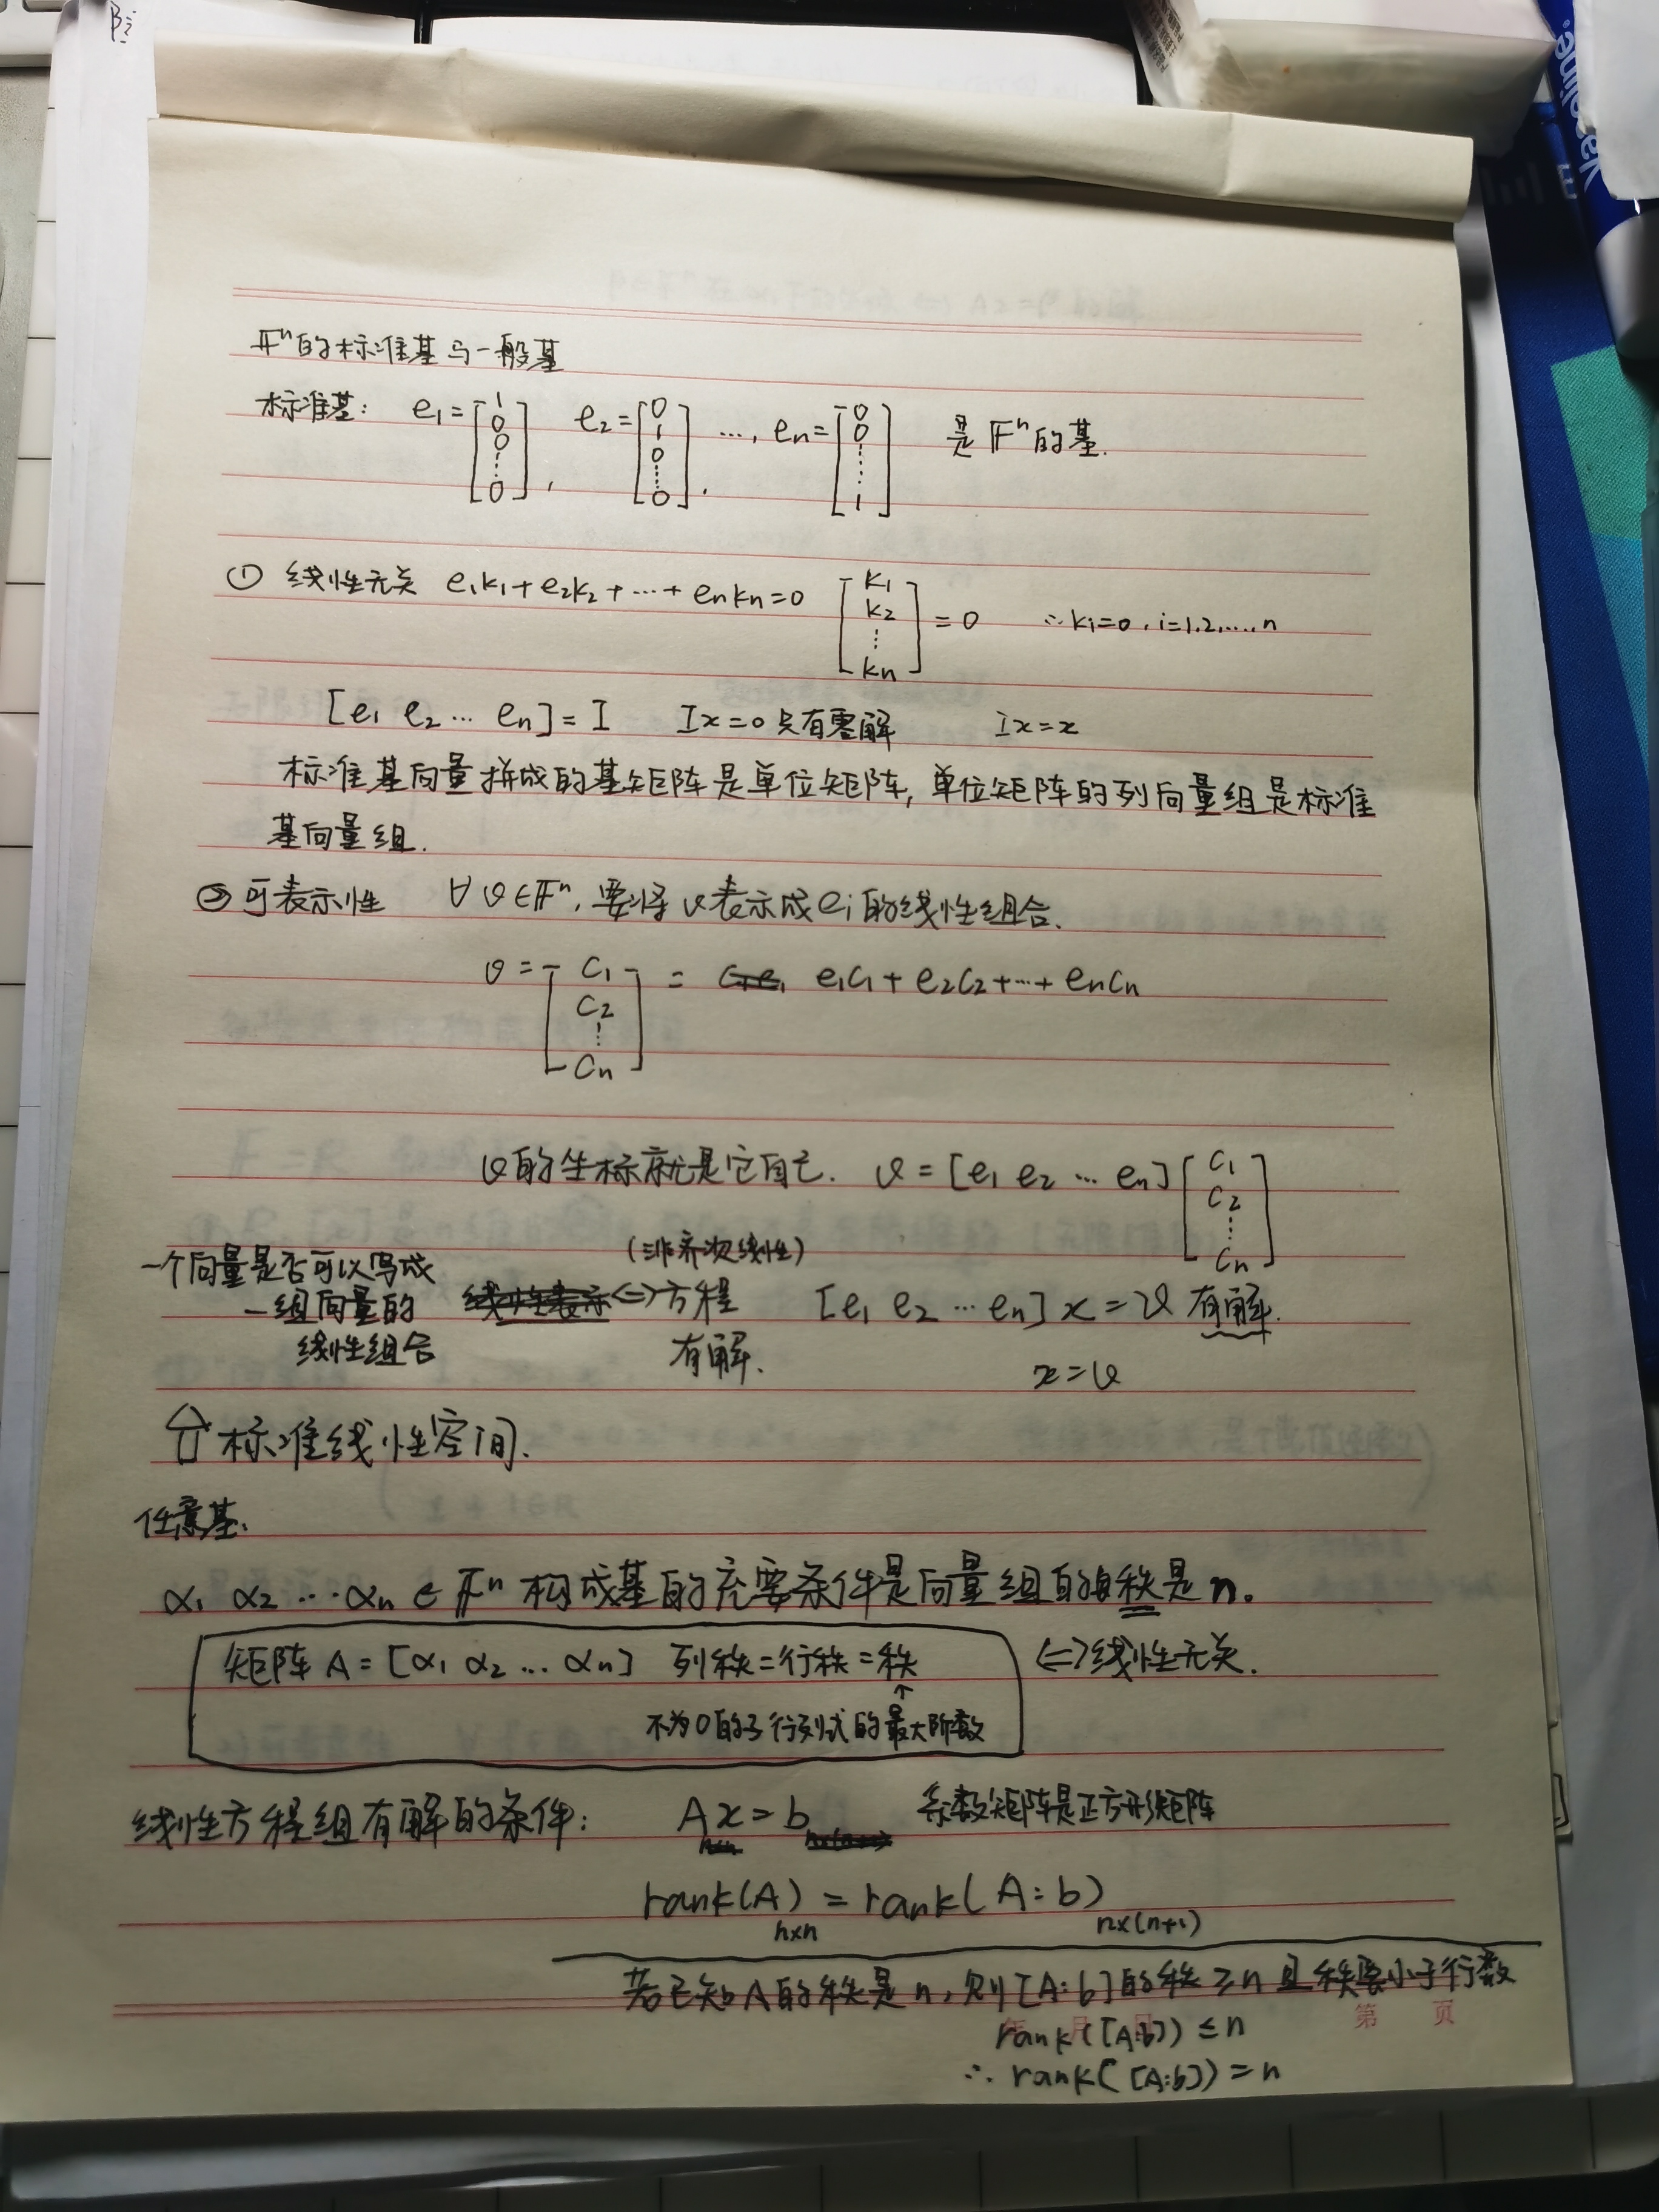 𝔽ⁿ的标准基与一般基
标准基: e₁=[1 0 0 ⋮ 0], e₂=[0 1 0 ⋮ 0], ..., eₙ=[0 0 ⋮ 1] 是𝔽ⁿ的基.
① 线性无关 e₁k₁+e₂k₂+⋯+eₙkₙ=0 [k₁ k₂ ⋮ kₙ]=0 ∴kᵢ=0, i=1,2,...,n
[e₁ e₂ ⋯ eₙ]=I Ix=0只有零解 Ix=x
标准基向量拼成的基矩阵是单位矩阵, 单位矩阵的列向量组是标准
基向量组.
②可表示性 ∀v∈𝔽ⁿ, 要将v表示成eᵢ的线性组合.
v=[c₁ c₂ ⋮ cₙ] = e₁c₁+e₂c₂+⋯+eₙcₙ
v的坐标就是它自己. v=[e₁ e₂ ⋯ eₙ][c₁ c₂ ⋮ cₙ]
一个向量是否可以写成
一组向量的
线性组合
线性表示
(非齐次线性)
⇔方程
有解.
[e₁ e₂ ⋯ eₙ]x=v 有解.
x=v
⇧标准线性空间.
任意基.
α₁ α₂ ⋯αₙ∈𝔽ⁿ 构成基的充要条件是向量组的秩是n。
矩阵A=[α₁ α₂ ⋯ αₙ] 列秩=行秩=秩 ⇔线性无关.
↑
不为0的子行列式的最大阶数
线性方程组有解的条件: Ax=b 系数矩阵是正方形矩阵
rank(A)ₙₓₙ=rank(A⋮b)ₙₓ₍ₙ₊₁₎
若已知A的秩是n, 则[A⋮b]的秩≥n且秩要小于行数
rank([A⋮b])≤n
∴ rank([A⋮b])=n
第 页
Vaseline